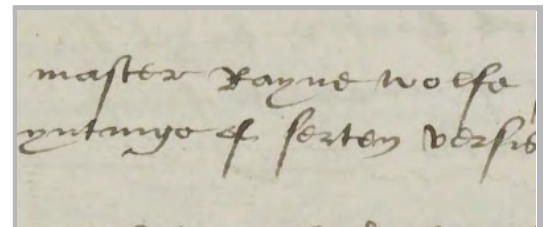 master Rayne wolfe
yntinge of serten versis